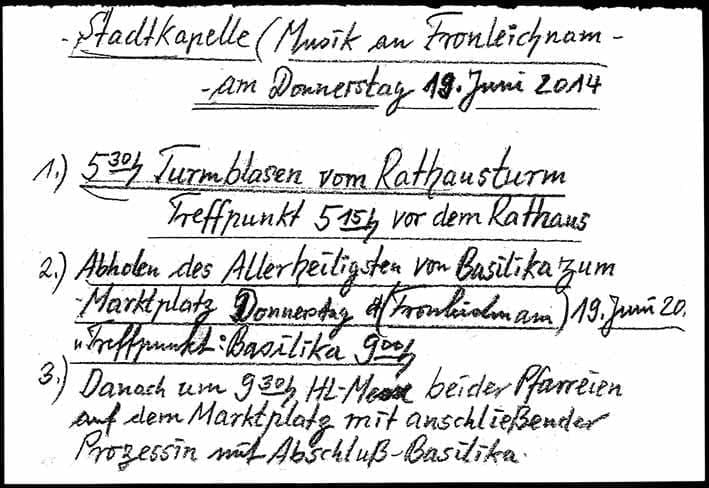 - Stadtkapelle (Musik an Fronleichnam -
- am Donnerstag 19. Juni 2014
1.) 5 30h Turmblasen vom Rathausturm
Treffpunkt 5 15h vor dem Rathaus
2.) Abholen des Allerheiligsten von Basilika zum
Marktplatz Donnerstag (Fronleichnam) 19. Juni 20.
" Treffpunkt: Basilika 9 00h
3.) Danach um 9 30h Hl-Messe beider Pfarreien
auf dem Marktplatz mit anschließender
Prozessin mit Abschluß-Basilika.